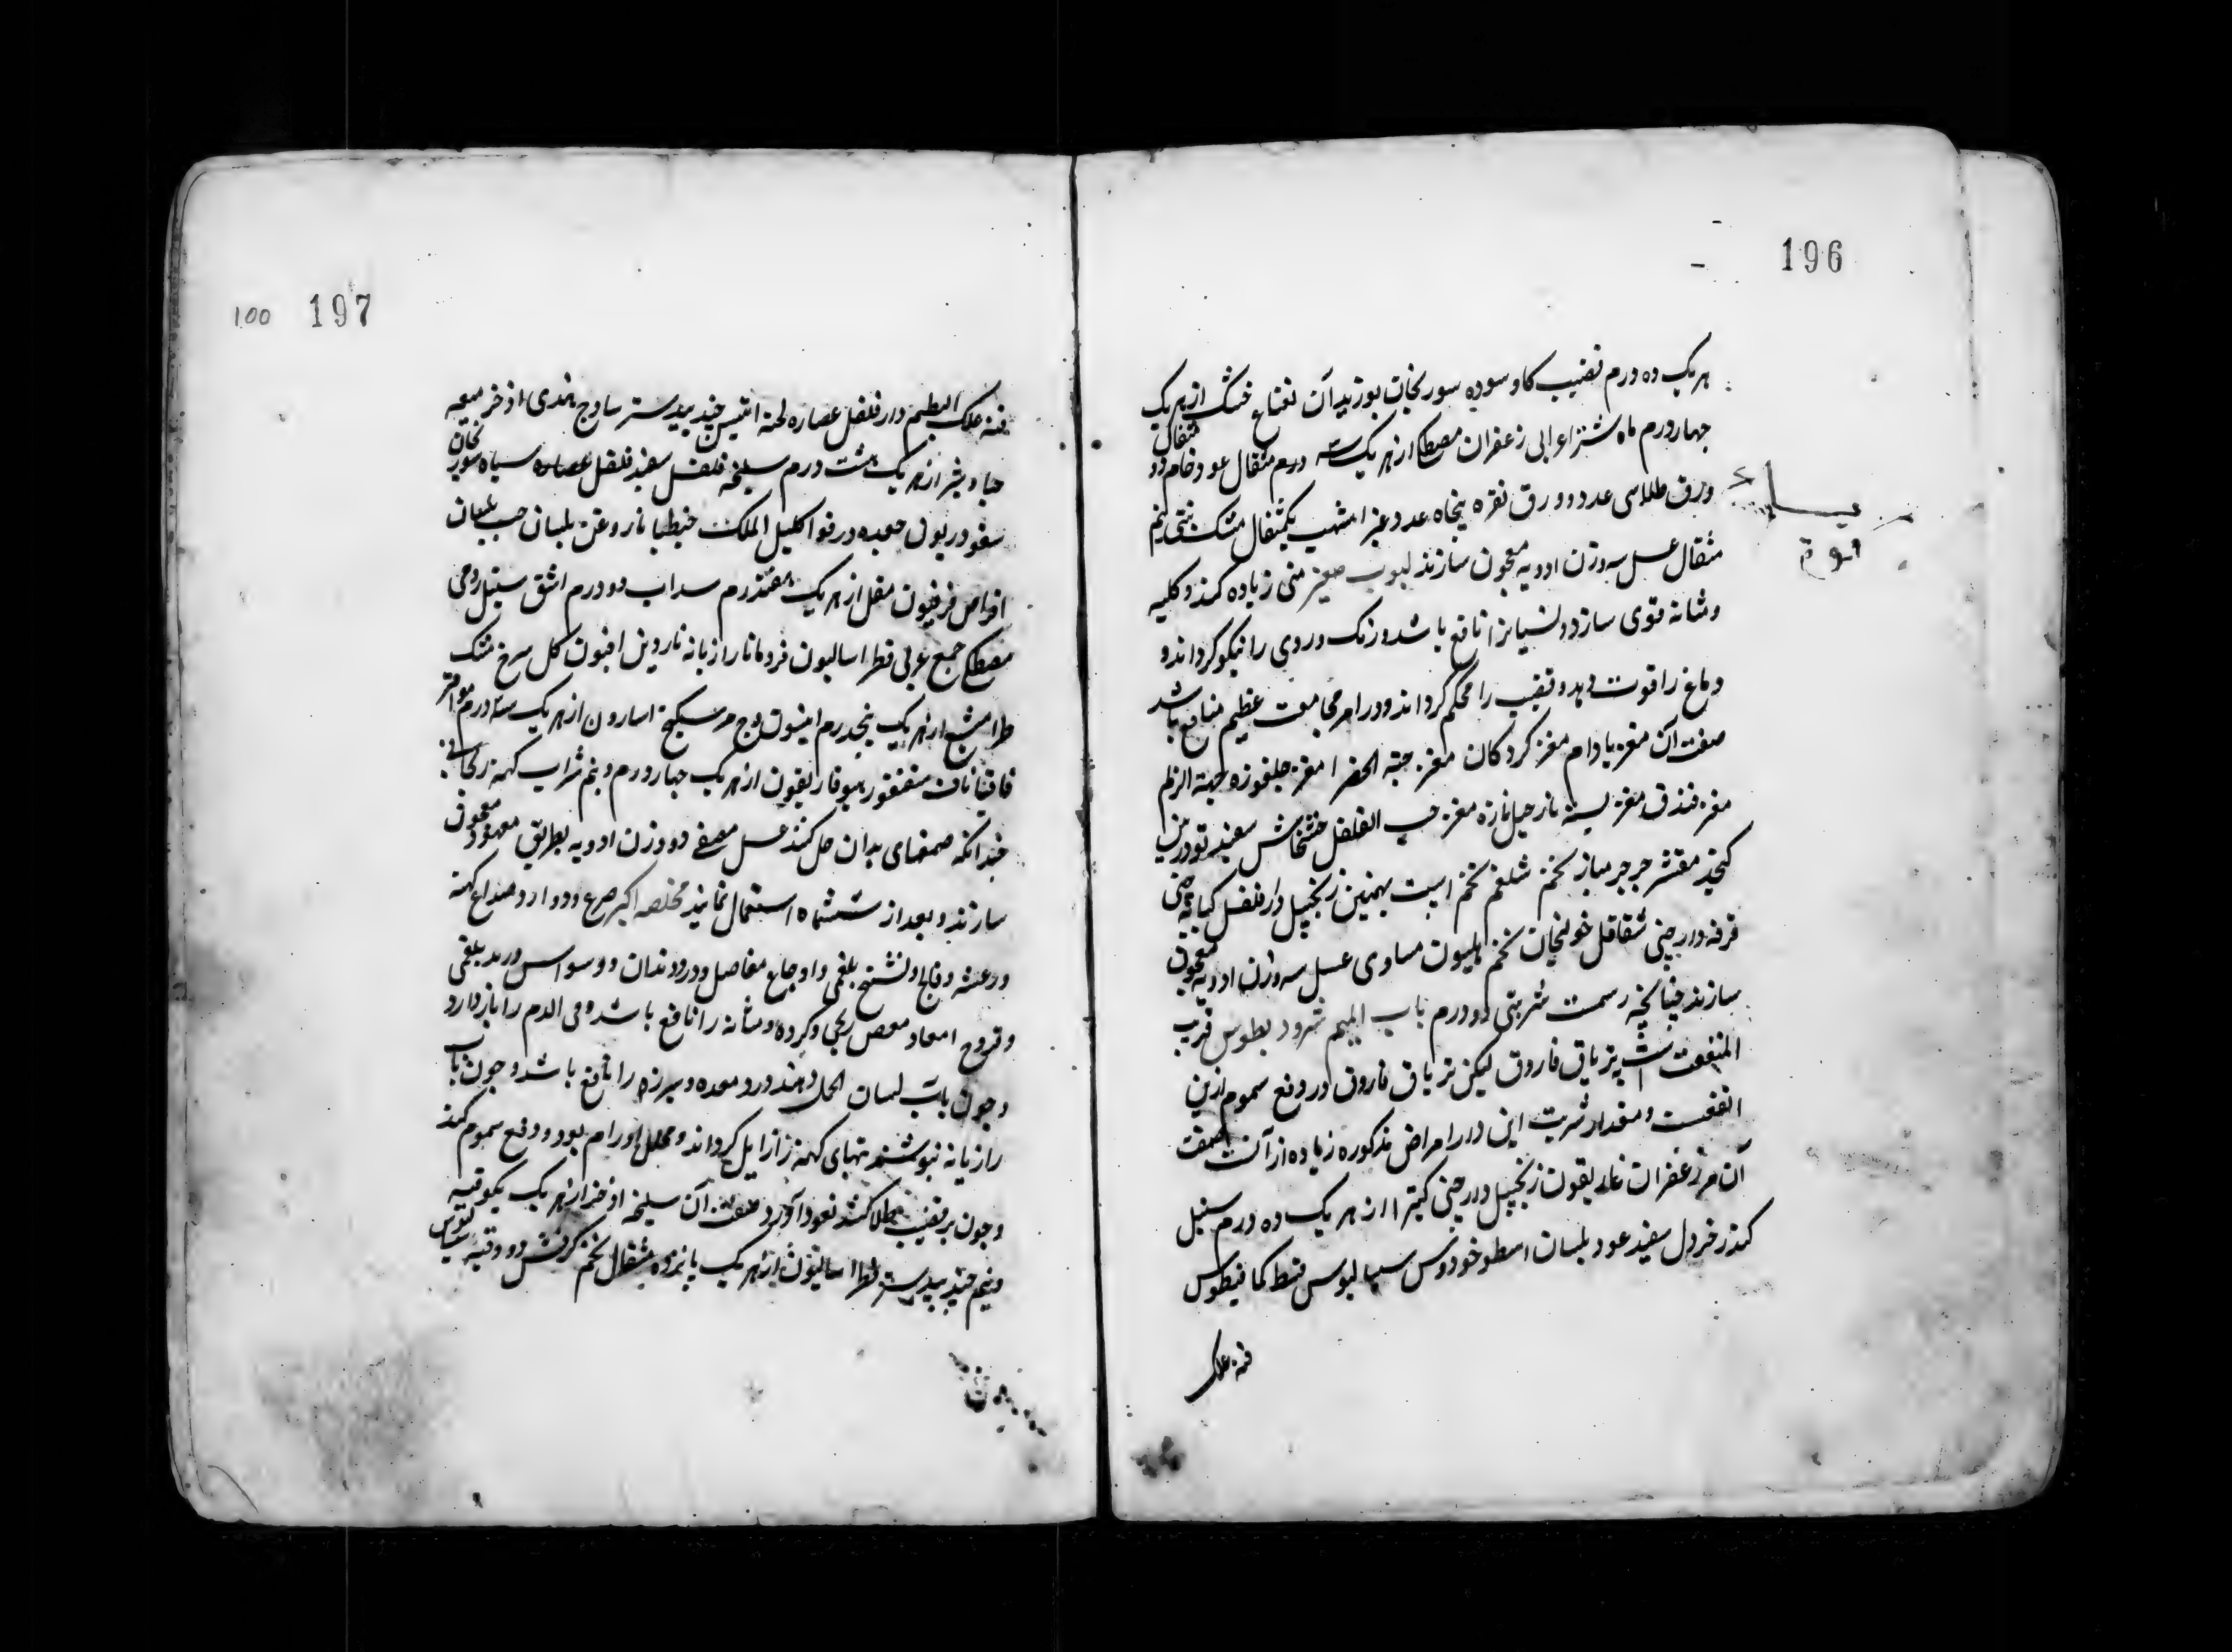 196
هریک ده درم قضیب کاو سوده سورنجان بوزیدان نعناع خشک از هریک
چهار درم ماه شتر اعرابی زعفران مصطکی از هریک سه درم مثقال عود خام دو مثقال
ورق طلا سی عدد و ورق نقره پنجاه عدد عنبر اشهب یکمثقال مشک تبتی نیم
مثقال عسل سه وزن ادویه معجون سازند لبوب صغیر منی زیاده کند و کلیه
و مثانه قوی سازد و لنسیانرا نافع باشد و رنک و روی را نیکو کرداند و
دماغ را قوت دهد و قضیب را محکم کرداند و در امر مجامعت عظیم منافع باشد
صفت آن مغز بادام مغز کردکان مغز حبة الخضرا مغز جلغوزه حبة الزلم
مغز فندق مغز پسته نارجیل تازه مغز حب الفلفل خشخاش سفید تودرین
کنجد مقشر جرجر بیاز تخم شلغم تخم اسپت بهمنین زنجبیل دارفلفل کبابه چینی
قرفه دارچینی شقاقل خولنجان تخم هلیون مساوی عسل سه وزن ادویه معجون
سازند چنانچه رسمست شربتی دو درم باب المیم مثرود یطوس قریب
المنفعت است بتریاق فاروق لیکن تریاق فاروق در دفع سموم ازین
انفعست و مقدار شربت این در امراض مذکوره زیاده از آنست صفت
آن مر زعفران غاریقون زنجبیل دارچینی کتیرا از هریک ده درم سنبل
کندر خردل سفید عود بلسان اسطوخودوس سیالیوس قسط کمافیطوس
قنه علک
197
100
قنه علک البطم دارفلفل عصاره لحیة التیس جند بیدستر ساذج هندی اذخر میعه
جاوشیر از هریک هشت درم سلیخه فلفل سفید فلفل سیاه سورنجان
سقوردیون جعده درقوا کلیل الملک جنطیانا روغن بلسان حب بلسان
اقراص فرفیون مقل از هریک هفتدرم سداب دو درم اشق سنبل رومی
مصطکی صمغ عربی قطراسالیون فردمانا رازیانه ناردین افیون کل سرخ مشک
طرامشیع از هریک پنجدرم انیسون وج مر سکبینج اسارون از هریک سه درم مو اقر
فاقیا ناف سقنقور هیوفاریقون از هریک چهار درم و نیم شراب کهنه ریحانی
چندانکه صمغهای بدان حل کنند عسل مصفی دو وزن ادویه بطریق معهود معجون
سازند و بعد از ششماه استعمال نمایند مخلصه اکبر صرع و دوار و صداع کهنه
و رعشه و فالج و تشنج بلغمی و اوجاع مفاصل و درد دندان و وسواس و رمد بلغمی
و قروح امعا و مغص ریحی و کرده و مثانه را نافع باشد و فی الدم را باز دارد
و چون باب لسان الحمل دهند درد معده و سپرزه را نافع باشد و چون باب
رازیانه نبوشند تبهای کهنه را زایل کرداند و محلل اورام بود و دفع سموم کند
و چون بر قضیب طلا کنند نعود آورد صفت آن سلیخه اذخر از هریک یکوقیه
و نیم جند بیدستر فطراسالیون از هریک پانزده مثقال تخم کرفس دو وقیه سیالیوس